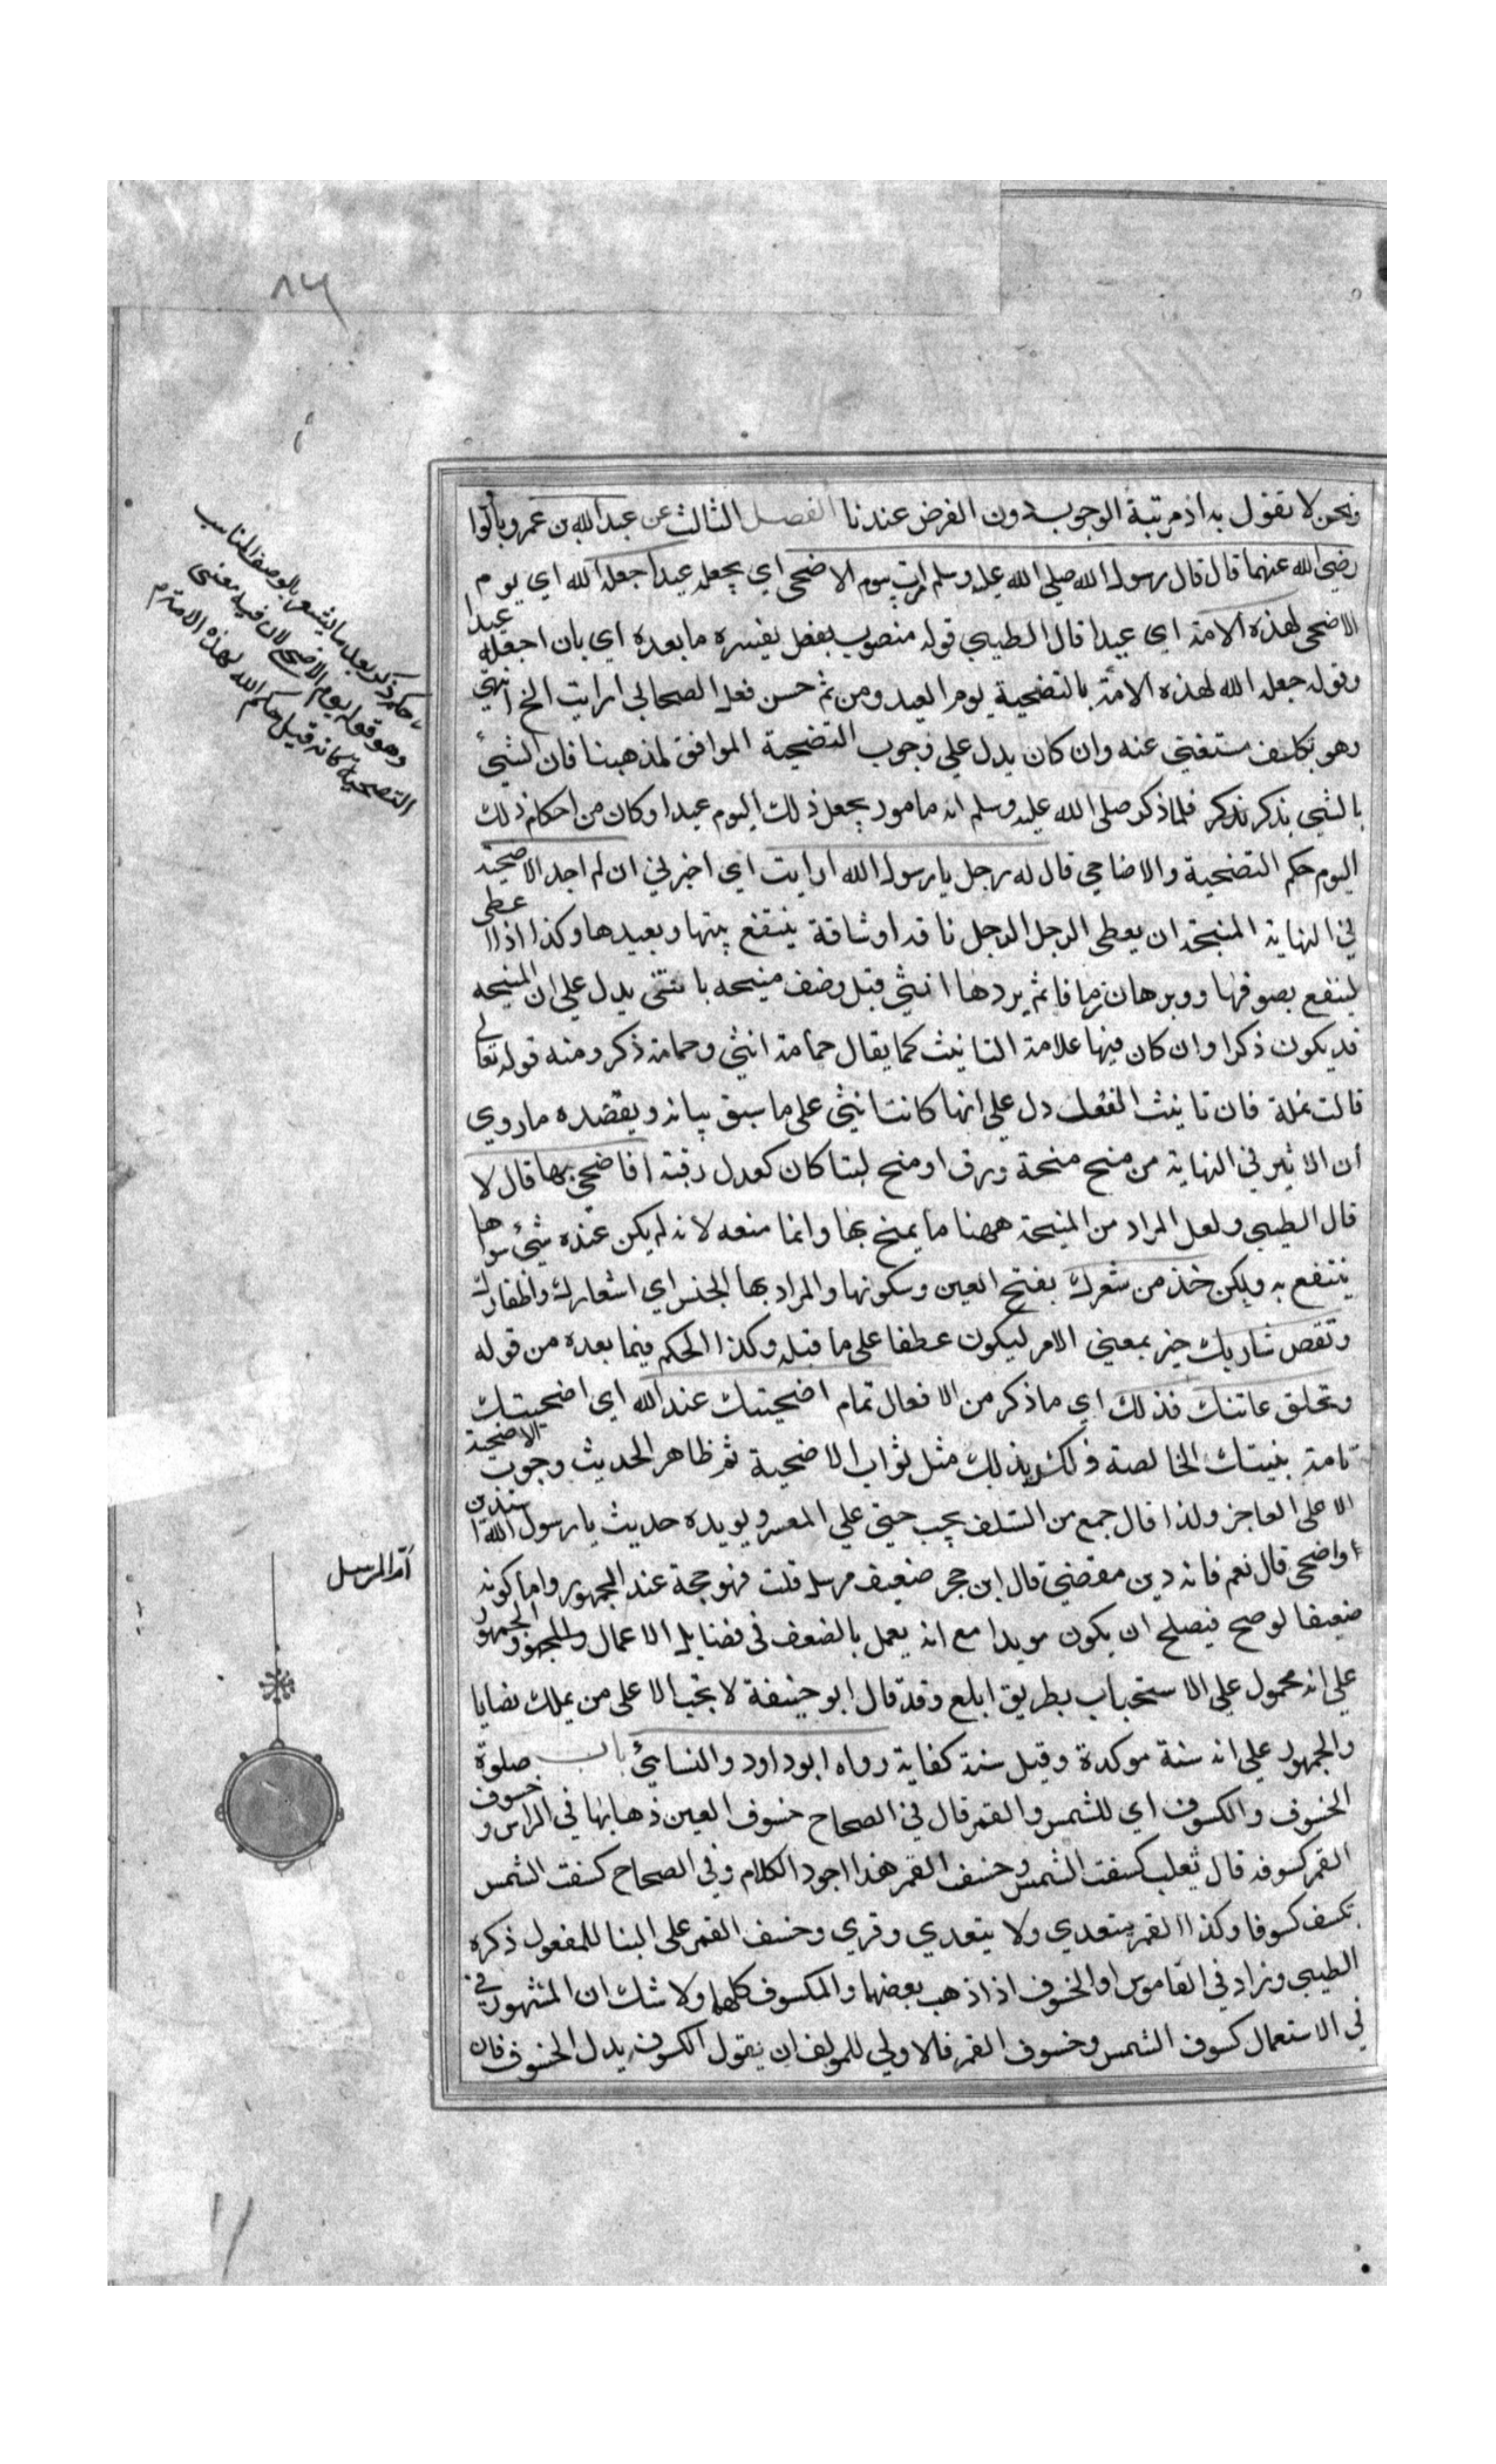 ونحن لا نقول به اذ مرتبة الوجوب دون الفرض عندنا الفصل الثالث عن عبد الله بن عمرو بالواو
رضى الله عنهما قال قال رسول الله صلى الله عليه وسلم امرت بيوم الاضحى اي بجعله عيدا جعله الله اي يوم
الاضحى لهذه الامة اي عيدا قال الطيبي قوله منصوب بفعل يفسره ما بعده اي بان اجعله عيدا
وقوله جعله الله لهذه الامة بالتضحية يوم العيد ومن ثم حسن فعد الصحابي ارايت الخ انتهى
وهو تكلف مستغنى عنه وان كان يدل على وجوب التضحية الموافق لمذهبنا فان الشيء
بالشيء يذكر فلما ذكر صلى الله عليه وسلم انه مامور بجعل ذلك اليوم عيدا وكان من احكام ذلك
اليوم حكم التضحية والاضاحي قال له رجل يا رسول الله ارايت اي اخبرني ان لم اجد الا منيحة
في النهاية المنيحة ان يعطى الرجل الرجل ناقة او شاة ينتفع بلبنها ويعيدها وكذا اذا اعطى
لينتفع بصوفها ووبرها زمانا ثم يردها انثى قيل وصف منيحه بانثى يدل على ان المنيحه
قد يكون ذكرا وان كان فيها علامة التانيث كما يقال حمامة انثى وحمامة ذكر ومنه قوله تعالى
قالت نملة فان تانيث الفعل دل على انها كانت انثى على ما سبق بيانه ويعضده ما روي
ان الاثير في النهاية من منح منحة ورق او منح لبنا كان كعدل رقبة افاضحي بها قال لا
قال الطيبي ولعل المراد من المنيحة ههنا ما يمنح بها وانما منعه لانه لم يكن عنده شيء سواها
ينتفع به ولكن خذ من شعرك بفتح العين وسكونها والمراد بها الجنس اي اشعارك واظفارك
وتقص شاربك خبر بمعنى الامر ليكون عطفا على ما قبله وكذا الحكم فيما بعده من قوله
وتحلق عانتك فذلك اي ما ذكر من الافعال تمام اضحيتك عند الله اي اضحيتك
تامة بنيتك الخالصة ولك بذلك مثل ثواب الاضحية ثم ظاهر الحديث وجوب الاضحية
الا على العاجز ولذا قال جمع من السلف يجب حتى على المعسر ويويده حديث يا رسول الله استدين
واضحى قال نعم فانه دين مقضي قال ابن حجر ضعيف مرسل قلت فهو حجة عند الجمهور واما كونه
ضعيفا لو صح فيصلح ان يكون مويدا مع انه يعمل بالضعف فى فضايل الاعمال والجمهور
على انه محمول على الاستحباب بطريق ابلغ وقد قال ابو حنيفة لا يجب الا على من يملك نصابا
والجمهور على انه سنة موكدة وقيل سنة كفاية رواه ابو داود والنسائي باب صلوة
الخسوف والكسوف اي للشمس والقمر قال في الصحاح خسوف العين ذهابها في الراس وخسوف
القمر كسوفه قال ثعلب كسفت الشمس وخسف القمر هذا اجود الكلام وفي الصحاح كسفت الشمس
تكسف كسوفا وكذا القمر يتعدي ولا يتعدي وقري وخسف القمر على البنا للمفعول ذكره
الطيبي وزاد في القاموس او الخسوف اذا ذهب بعضهما والكسوف كلهما ولا شك ان المشهور في
في الاستعمال كسوف الشمس وخسوف القمر فالاولى للمولف ان يقول الكسوف بدل الخسوف فان
ذكر بعد ما يشعر بالوصف المناسب
وهو قوله يوم الاضحى لان فيه معنى
التضحية كانه قيل حكم الله لهذه الامة
اما المرسل